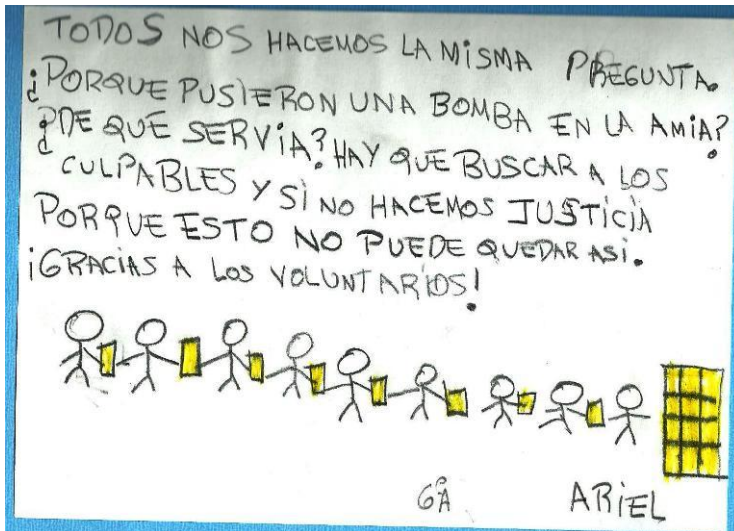 TODOS NOS HACEMOS LA MISMA PREGUNTA.
¿PORQUE PUSIERON UNA BOMBA EN LA AMIA?
¿DE QUE SERVIA? HAY QUE BUSCAR A LOS
CULPABLES Y SI NO HACEMOS JUSTICIA
PORQUE ESTO NO PUEDE QUEDAR ASI.
¡GRACIAS A LOS VOLUNTARIOS!
6ºA ARIEL